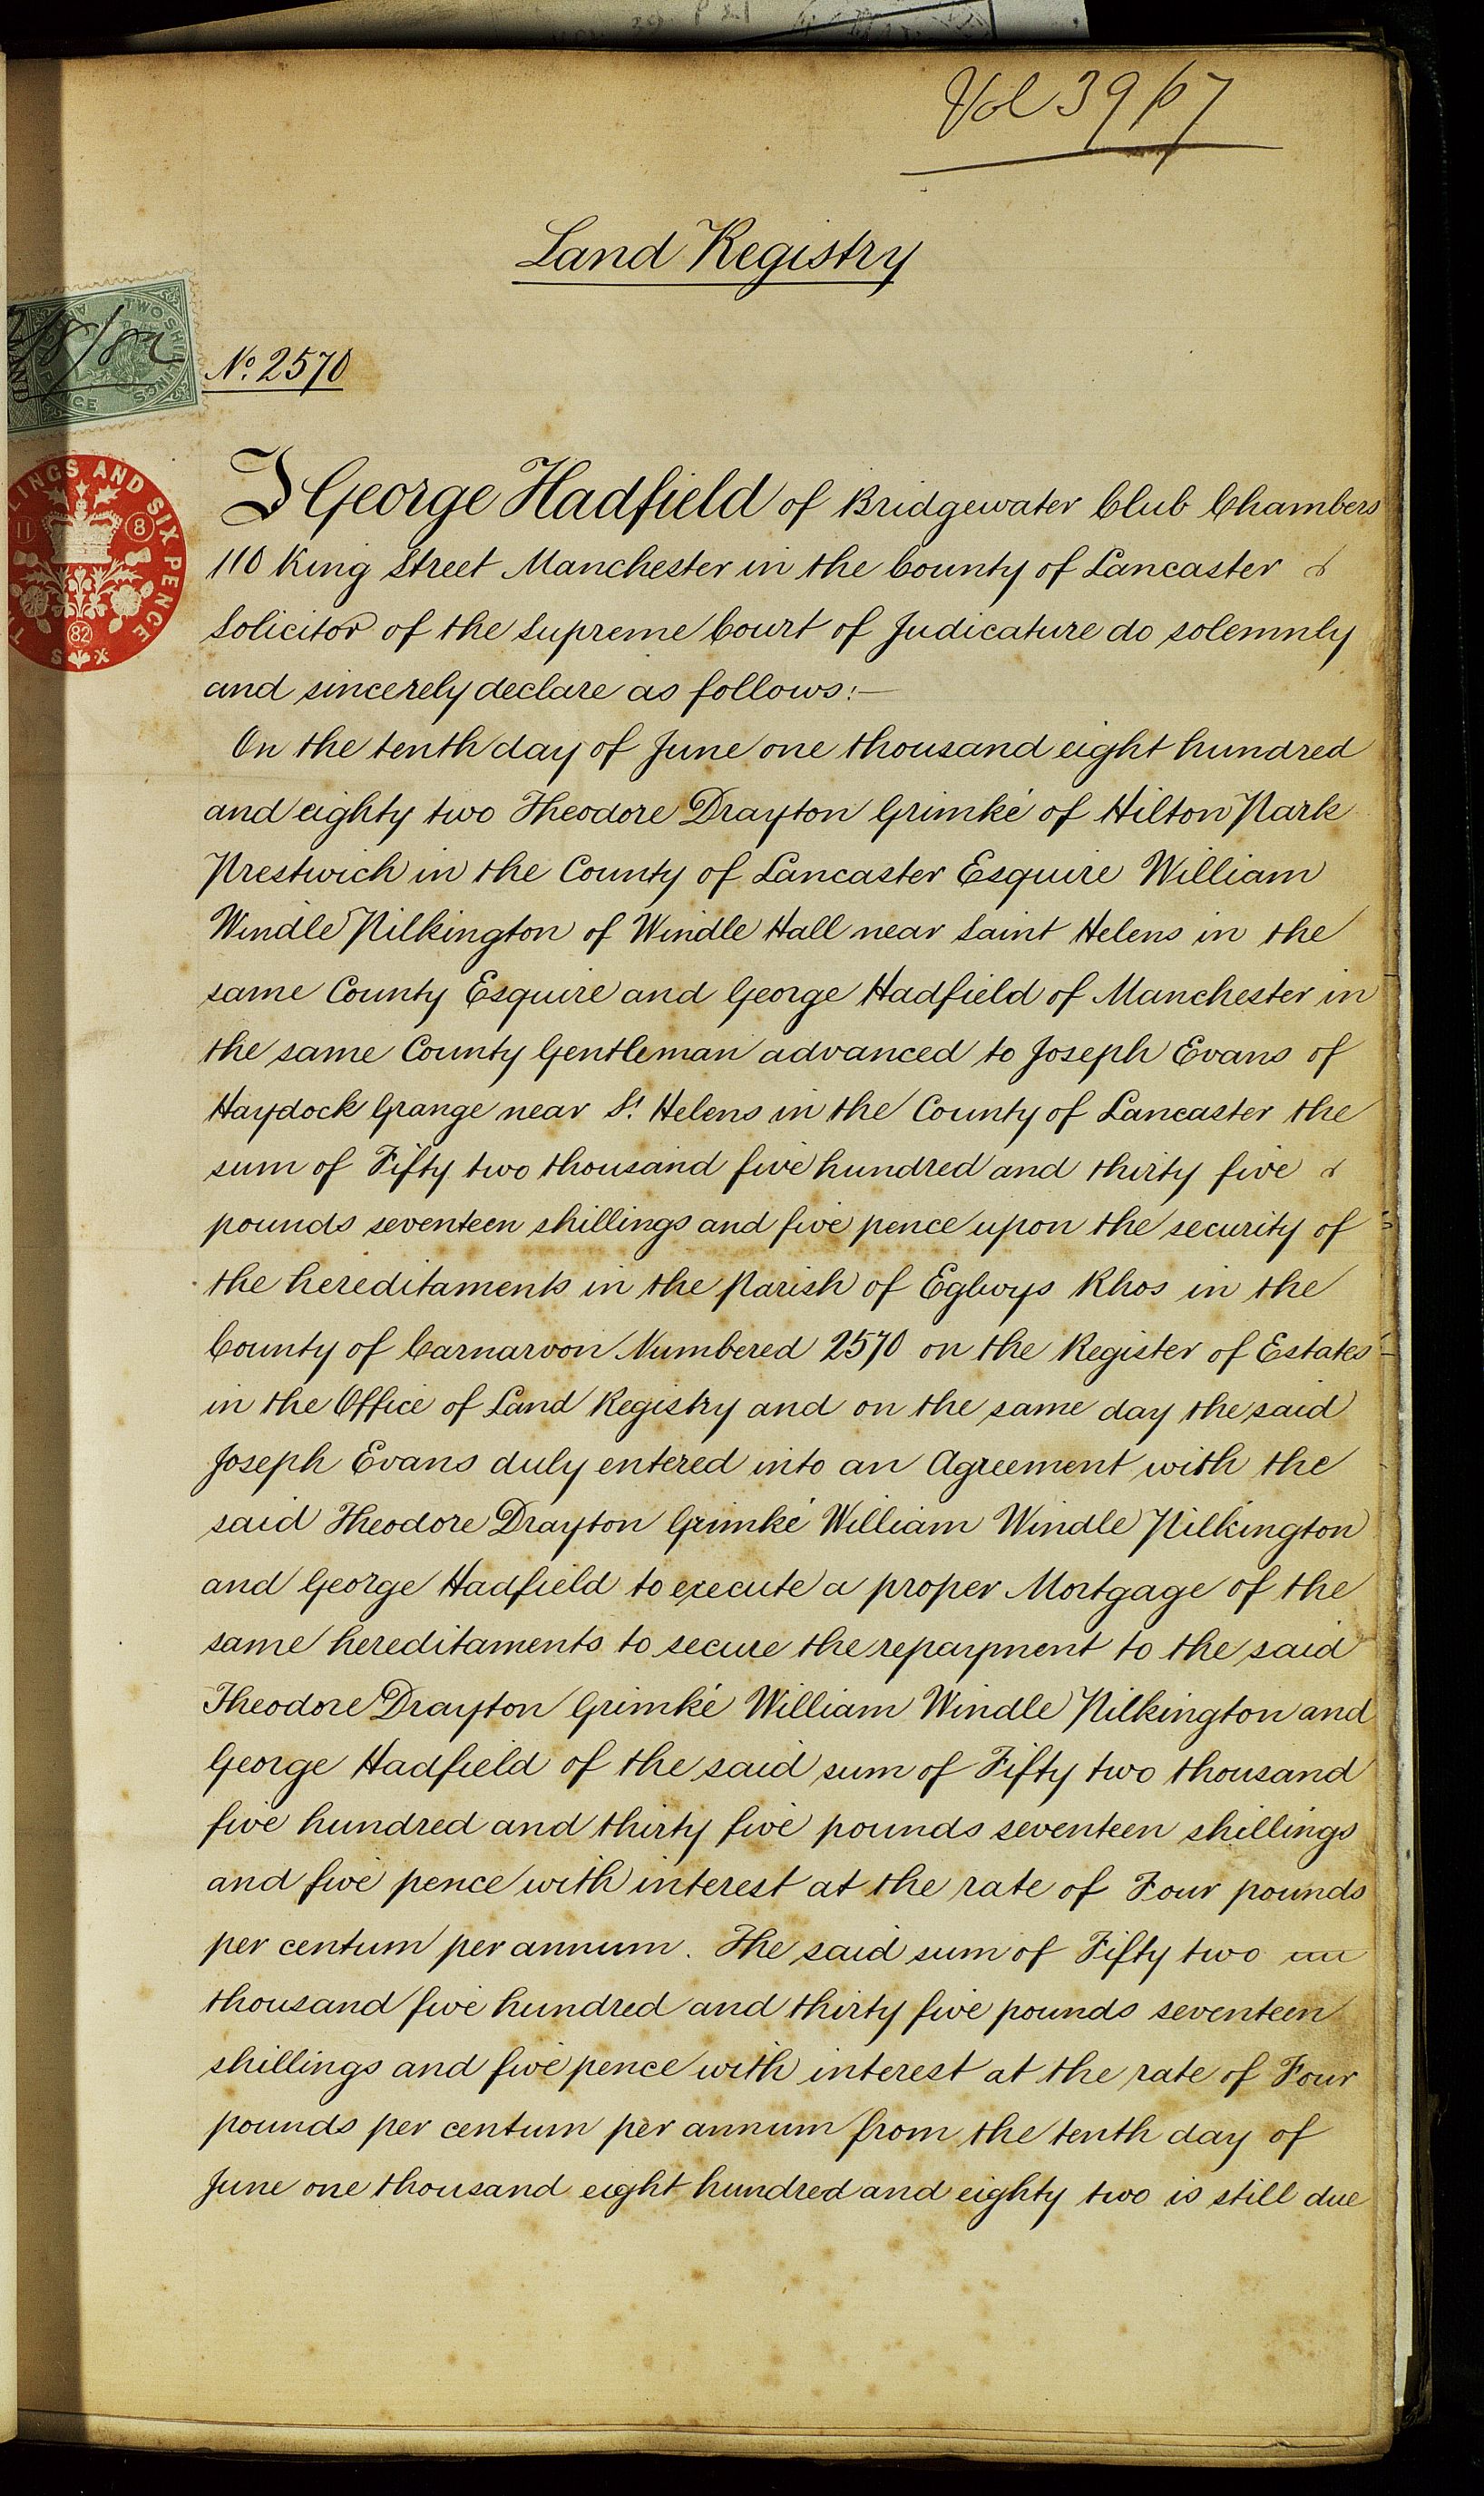 Vol 39 p7
Land Registry
TWO SHILLINGS
18/82
No. 2570
LINGS AND SIX PENCE
11 8
82
I George Hadfield of Bridgewater Club Chambers
110 King Street Manchester in the County of Lancaster
Solicitor of the Supreme Court of Judicature do solemnly
and sincerely declare as follows:—
On the tenth day of June one thousand eight hundred
and eighty two Theodore Drayton Grimké of Hilton Park
Prestwich in the County of Lancaster Esquire William
Windle Pilkington of Windle Hall near Saint Helens in the
same County Esquire and George Hadfield of Manchester in
the same County Gentleman advanced to Joseph Evans of
Haydock Grange near St. Helens in the County of Lancaster the
sum of Fifty two thousand five hundred and thirty five
pounds seventeen shillings and five pence upon the security of
the hereditaments in the Parish of Eglwys Rhos in the
County of Carnarvon Numbered 2570 on the Register of Estates
in the Office of Land Registry and on the same day the said
Joseph Evans duly entered into an Agreement with the
said Theodore Drayton Grimké William Windle Pilkington
and George Hadfield to execute a proper Mortgage of the
same hereditaments to secure the repayment to the said
Theodore Drayton Grimké William Windle Pilkington and
George Hadfield of the said sum of Fifty two thousand
five hundred and thirty five pounds seventeen shillings
and five pence with interest at the rate of Four pounds
per centum per annum. The said sum of Fifty two
thousand five hundred and thirty five pounds seventeen
shillings and five pence with interest at the rate of Four
pounds per centum per annum from the tenth day of
June one thousand eight hundred and eighty two is still due